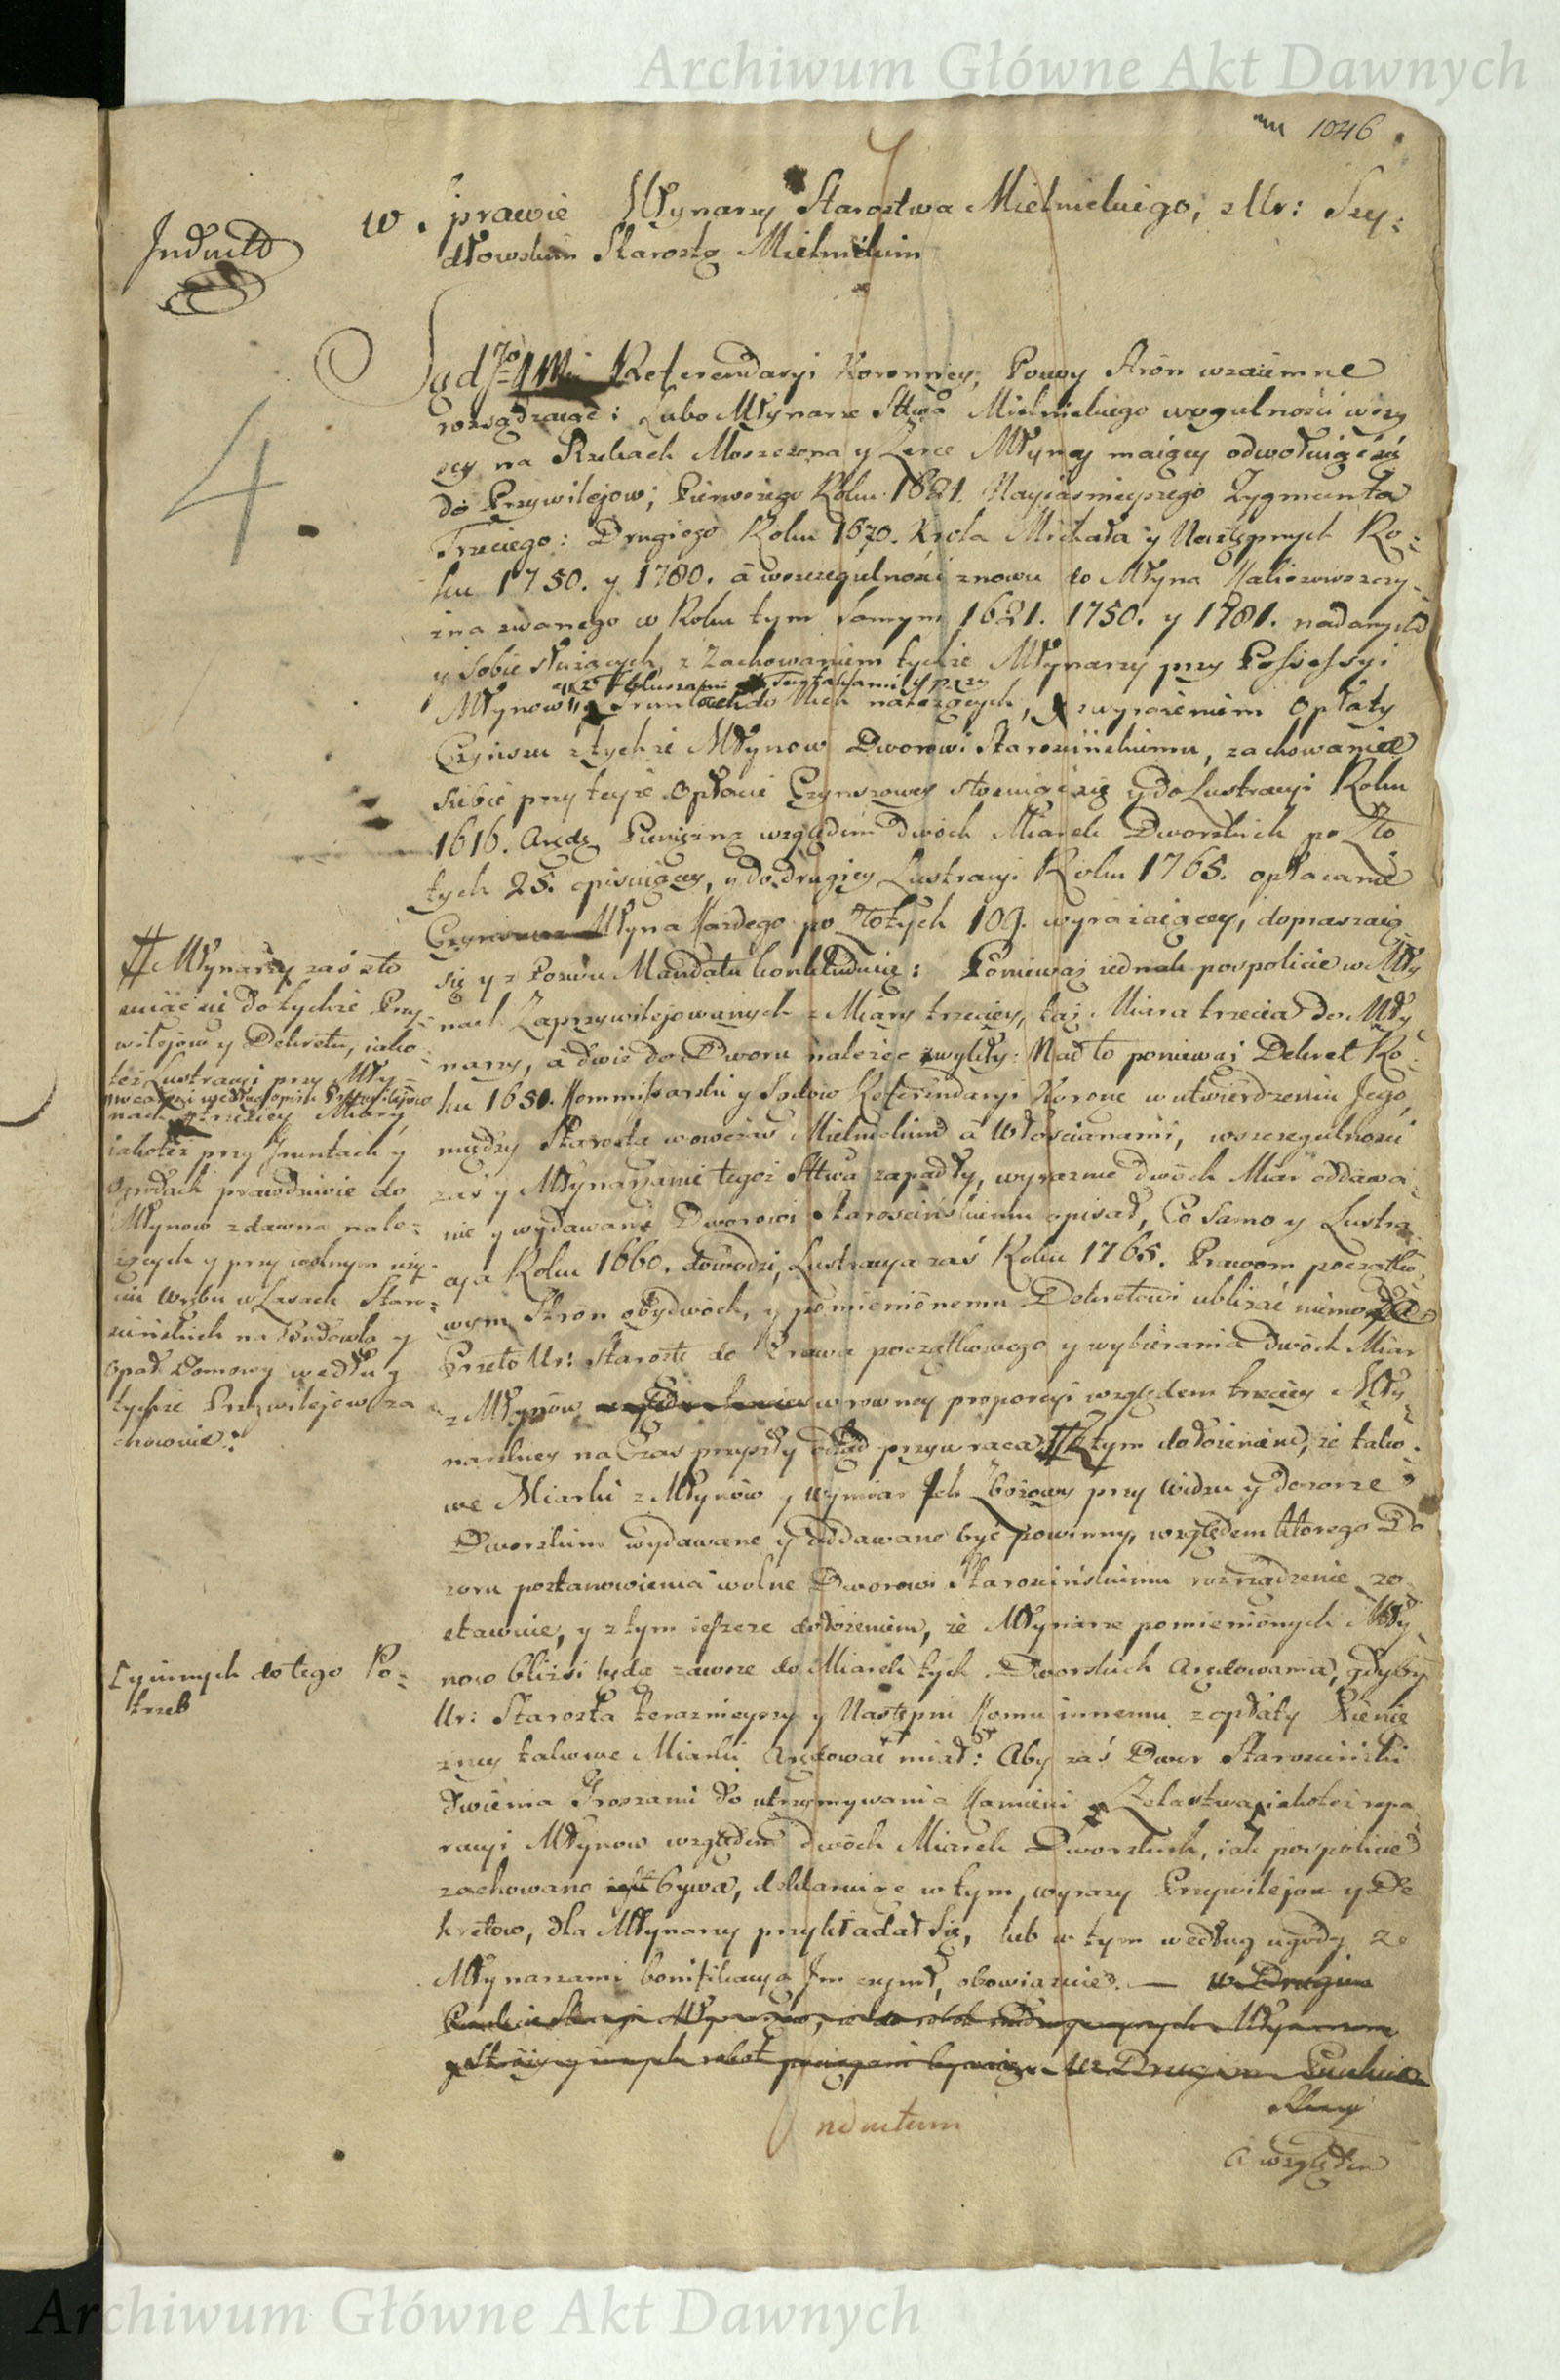 Archiwum Główne Akt Dawnych
1046
w Sprawie Młynarzy Starostwa Mielnickiego, z Ur: Szy:
dłowskim Starostą Mielnickim
Inductd
4.
Sąd Referendaryi Koronney, Pozwy Strón wzaiemne
rozsądzaiąc: Lubo Młynarze Sttwa Mielnickiego wogulności wszy
scy na Rzekach Moszczona y Zerce Młyny maiący odwołuiąc się
do Przywilejow; Pierwszego Roku 1621. Nayiasnieyszego Zygmunta
Trzeciego: Drugiego Roku 1670. Krola Michała y Następnych Ro:
ku 1750. y 1780. á wszczegulności znowu do Młyna
zna zwanego w Roku tym samym 1621. 1750. y 1781. nadanych
y sobie służących, z Zachowaniem tychże Młynarzy przy Possessyi
Młynow Gruntach do Nich należących, z wyrażeniem Opłaty
Czynszu z tychże Młynow Dworowi Starościńskiemu, zachowanie
siebie przy teyże Opłacie Czynszowey stosuiąc się y do Lustracyi Roku
1616. Arędę Pieniężną względem dwóch Miarek Dworskich po Zło
tych 25. opisuiącey, y do drugiey Lustracyi Roku 1765. opłacanie
Czynszu z Młyna Każdego po Złotych 109. wyrażaiącey, dopraszaią
się y z Pozwu Mandatu konkluduią: Ponieważ iednak pospolicie w Mły
nach Zaprzywilejowanych z Miary trzeciey, taż Miara trzecia do Mły
narzy, á dwie do Dworu należeć zwykły: Nad to ponieważ Dekret Ro:
ku 1650. Kommissarski y Sądow Referendaryi Koronne w utwierdzeniu Jego,
między Starostą wowczas Mielnickim á Włościanami, wszczegulności
zaś y Młynarzami tegoż Sttwa zapadły, wyraznie dwóch Miar oddawa
nie y wydawanie Dworowi Starościńskiemu opisał, Co samo y Lustra
cya Roku 1660. dowodzi, Lustracya zaś Roku 1765. Prawom początko
wym Stron obydwóch, y pomienionemu Dekretowi ubliżać niemoże
Przeto Ur: Starostę do Prawa początkowego y wybierania dwóch Miar
z Młynów w rowney proporcyi względem trzeciey Mły
narskiey na Czas przyszły odtąd przywraca # Z tym dołożeniem, że tako:
we Miarki z Młynów y wymiar Ich Zbożowy przy widzu y dozorze
Dworskim wydawane y oddawane być powinny, względem którego Do
zoru postanowienia wolne Dworowi Starościńskiemu rozrządzenie zo
stawuie, y z tym ieszcze dołożeniem, że Młynarze pomienionych Mły
now bliżsi będą zawsze do Miarek tych Dworskich Arędowania, gdyby
Ur: Starosta terazneyszy y Następni Komu innemu z opłaty Pienię
żney takowe Miarki Arędować miał: Aby zaś Dwor Starościński
dwiema Groszami do utrzymywania Kamieni y Zelastwa, iakoteż repa
racyi Młynow względem dwóch Miarek Dworskich, iak pospolicie
zachowano bywa, deklaruiąc w tym wyrazy Przywilejow y De
kretow, dla Młynarzy przykładał się, lub w tym według ugody ze
Młynarzami bonifikacyą Im czynił, obowiązuie. — w Drugim
w Drugim Punkcie
Inductum
á względem
# Młynarzy zaś sto
suiąc się do tychże Przy:
wilejow y Dekretu, iako
też Lustracyi przy Mły
nach trzeciey Miary
iakoteż przy Gruntach y
Ogrodach prawdziwie do
Młynow zdawna nale:
żących y przy wolnym uży
ciu Wrębu w Lasach Staro:
scińskich na Budowlą y
Opał Domowy według
tychże Przywilejow za
chowuie:
Ly innych do tego Po:
trzeb
Archiwum Główne Akt Dawnych